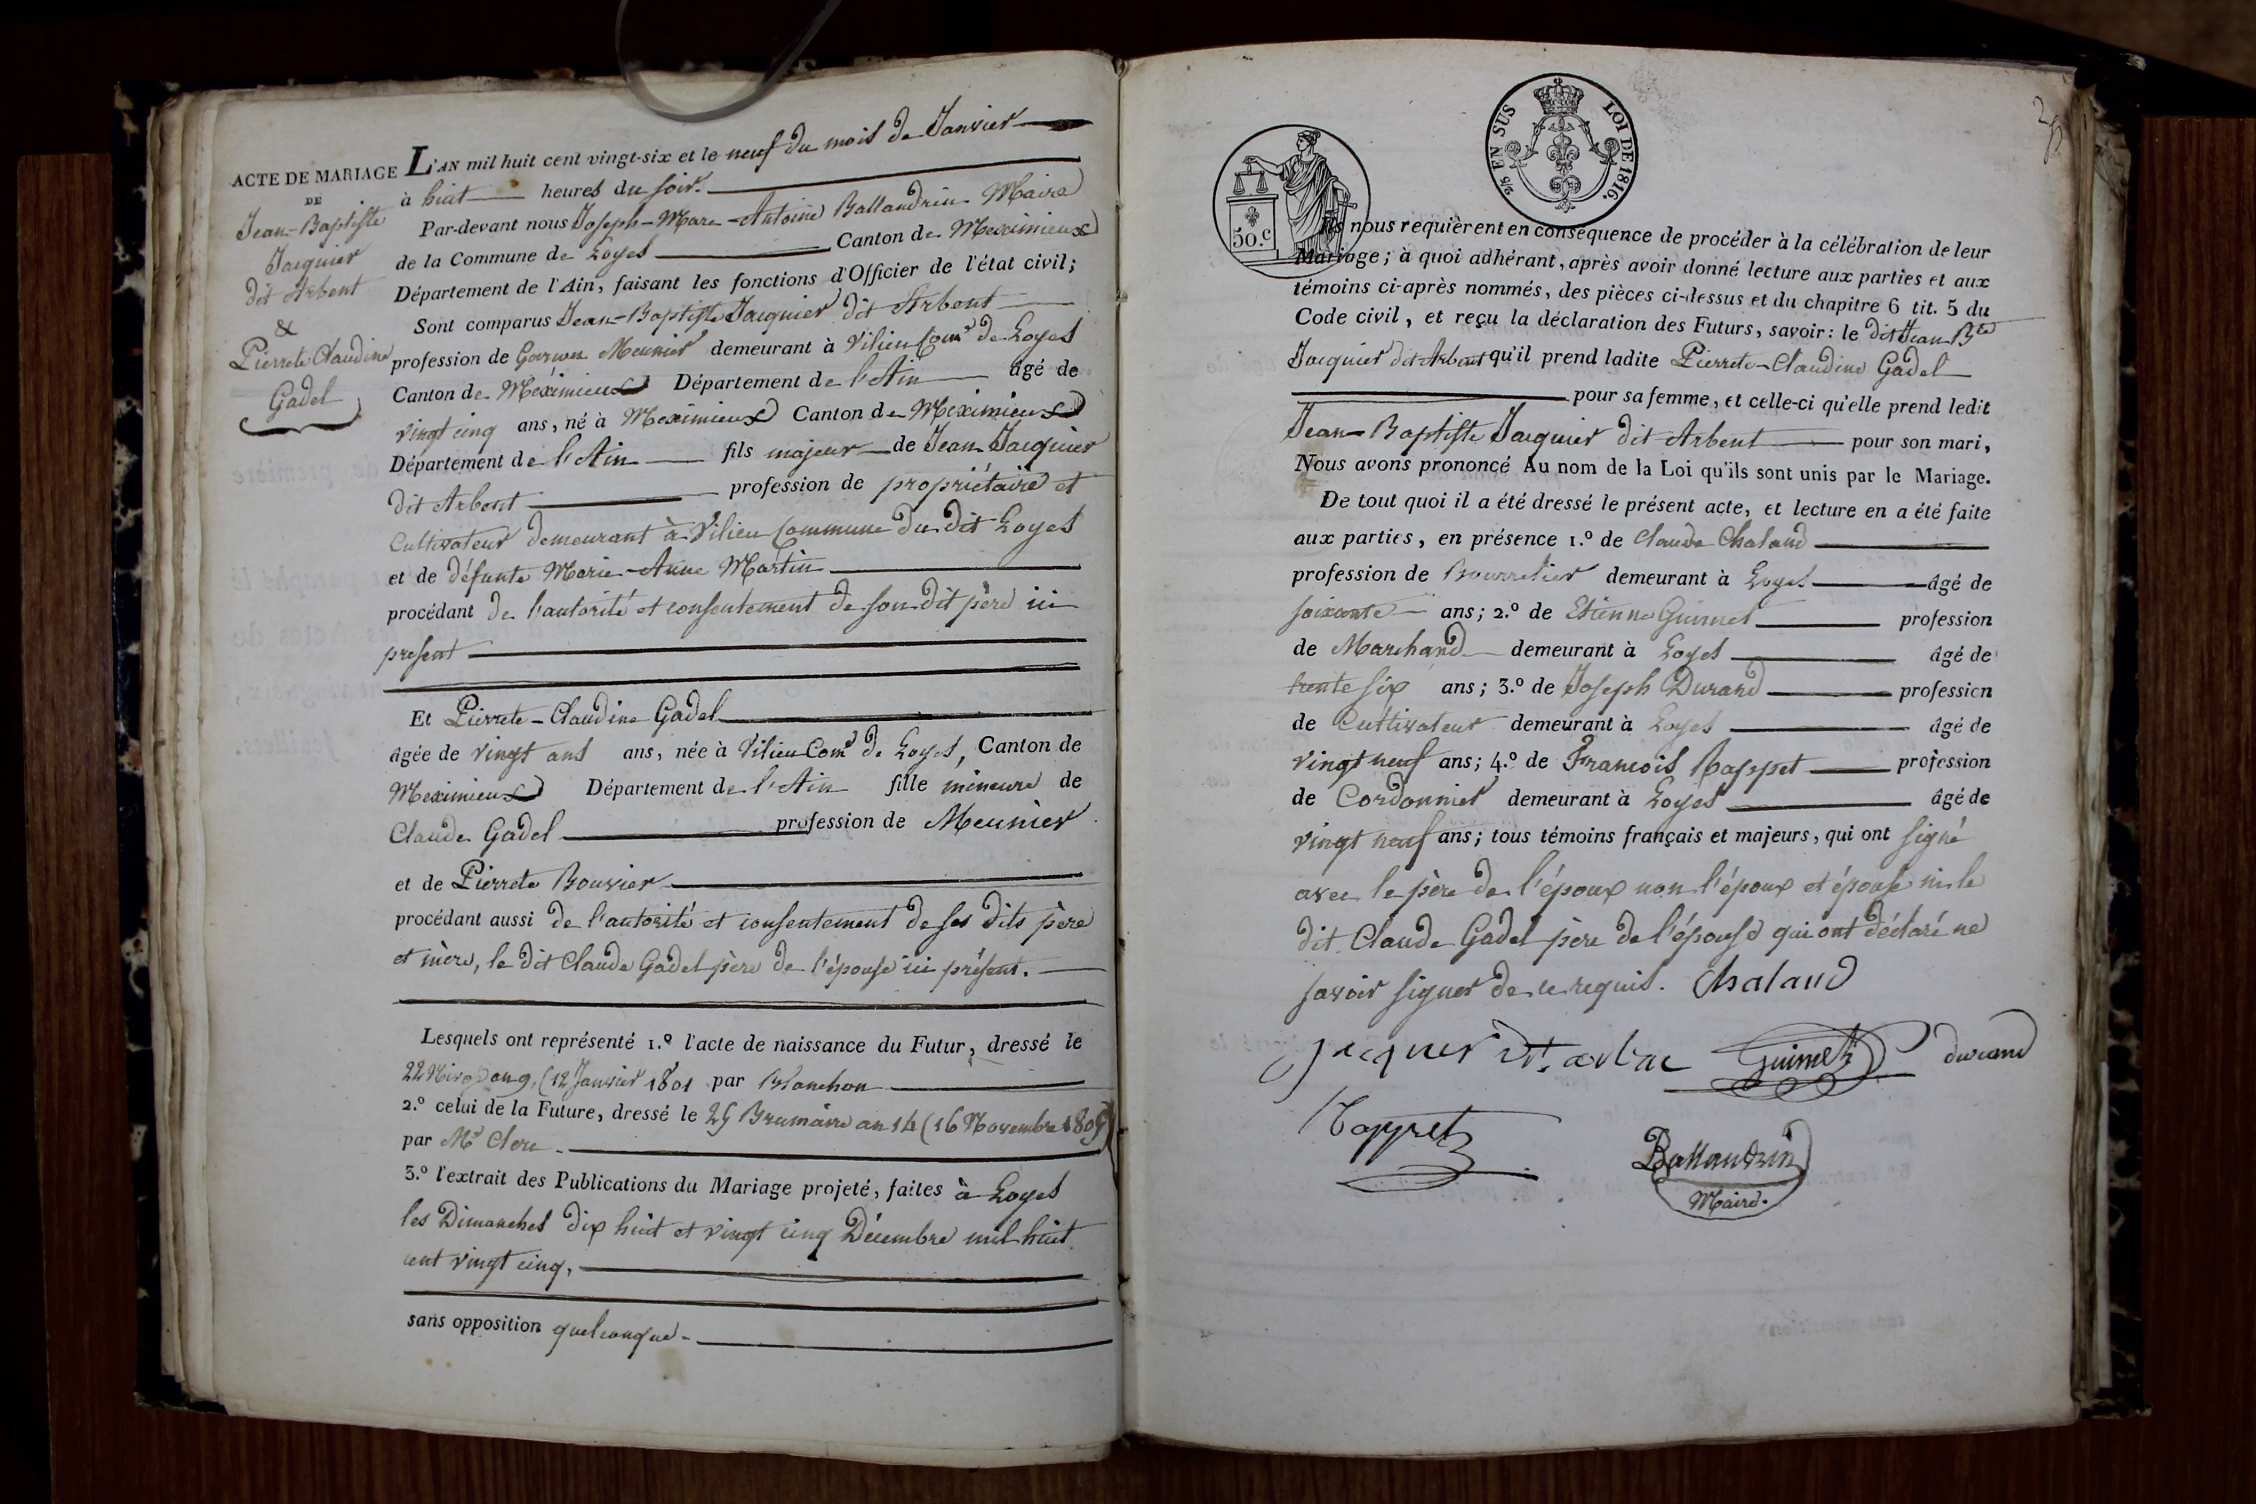 ACTE DE MARIAGE
DE
Jean-Baptiste
Jacquier
dit Arbent
&
Pierrete Claudine
Gadel
L'AN mil huit cent vingt-six et le neuf du mois de Janvier
à huit heures du soir.
Par-devant nous Joseph-Marc-Antoine Ballandrin Maire
de la Commune de Loyes Canton de Meximieux
Département de l'Ain, faisant les fonctions d'Officier de l'état civil;
Sont comparus Jean-Baptiste Jacquier dit Arbent
profession de Garcon Meunier demeurant à Vilieu Comᵉ de Loyes
Canton de Meximieux Département de l'Ain âgé de
vingt cinq ans, né à Meximieux Canton de Meximieux
Département de l'Ain fils majeur de Jean Jacquier
dit Arbent profession de propriétaire et
Cultivateur demeurant à Vilieu Commune du dit Loyes
et de défunte Marie-Anne Martin
procédant de l'autorité et consentement de son dit père ici
present
Et Pierrete-Claudine Gadel
âgée de vingt ans ans, née à Vilieu Comᵉ de Loyes, Canton de
Meximieux Département de l'Ain fille mineure de
Claude Gadel profession de Meunier
et de Pierrete Bouvier
procédant aussi de l'autorité et consentement de ses dits père
et mère, le dit Claude Gadel père de l'épouse ici présent.
Lesquels ont représenté 1.º l'acte de naissance du Futur, dressé le
22 Nivose an 9, (12 Janvier 1801 par Blanchon
2.º celui de la Future, dressé le 25 Brumaire an 14 (16 Novembre 1805)
par Mʳ Clerc
3.º l'extrait des Publications du Mariage projeté, faites à Loyes
les Dimanches dix huit et vingt cinq Décembre mil huit
cent vingt cinq,
sans opposition quelconque
2/5 EN SUS LOI DE 1816.
50.c
Ils nous requièrent en conséquence de procéder à la célébration de leur
Mariage; à quoi adhérant, après avoir donné lecture aux parties et aux
témoins ci-après nommés, des pièces ci-dessus et du chapitre 6 tit. 5 du
Code civil, et reçu la déclaration des Futurs, savoir: le dit Jean Bte
Jacquier dit Arbent qu'il prend ladite Pierrete-Claudine Gadel
pour sa femme, et celle-ci qu'elle prend ledit
Jean-Baptiste Jacquier dit Arbent pour son mari,
Nous avons prononcé Au nom de la Loi qu'ils sont unis par le Mariage.
De tout quoi il a été dressé le présent acte, et lecture en a été faite
aux parties, en présence 1.º de Claude Chaland
profession de Bourrelier demeurant à Loyes âgé de
soixante ans; 2.º de Etienne Guimet profession
de Marchand demeurant à Loyes âgé de
trente six ans; 3.º de Joseph Durand profession
de Cultivateur demeurant à Loyes âgé de
vingt neuf ans; 4.º de François Rappet profession
de Cordonnier demeurant à Loyes âgé de
vingt neuf ans; tous témoins français et majeurs, qui ont signé
avec le père de l'époux non l'époux et épouse ni le
dit Claude Gadel père de l'épouse qui ont déclaré ne
savoir signer de ce requis. Chaland
Jacquier dit Guimet durand
Rappet
Ballandrin
Maire.